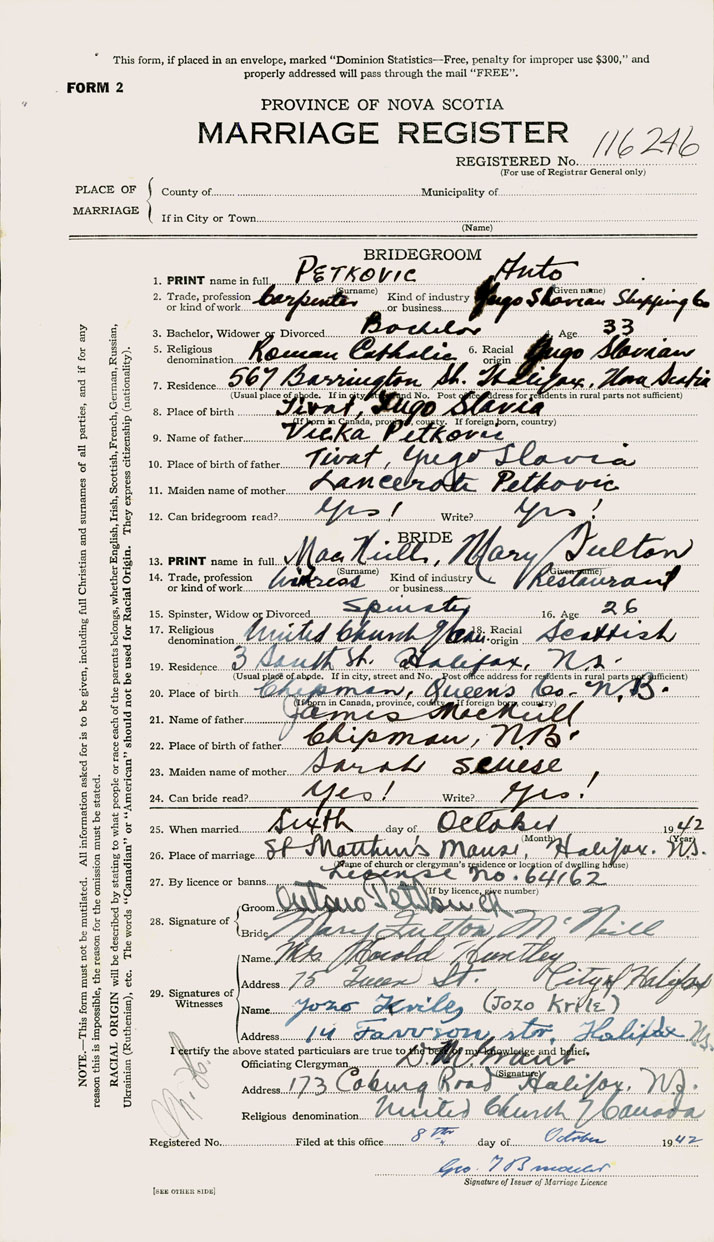 This form, if placed in an envelope, marked "Dominion Statistics—Free, penalty for improper use $300," and
properly addressed will pass through the mail "FREE".
FORM 2
PROVINCE OF NOVA SCOTIA
MARRIAGE REGISTER
REGISTERED No. 116246
(For use of Registrar General only)
PLACE OF MARRIAGE
County of Municipality of
If in City or Town
(Name)
BRIDEGROOM
1. PRINT name in full PETKOVIC Anto
(Surname) (Given name)
2. Trade, profession or kind of work Carpenter Kind of industry or business Yugo Slavian Shipping Co
3. Bachelor, Widower or Divorced Bachelor 4. Age 33
5. Religious denomination Roman Catholic 6. Racial origin Yugo Slavian
7. Residence 567 Barrington St. Halifax, Nova Scotia
(Usual place of abode. If in city, street and No. Post office address for residents in rural parts not sufficient)
8. Place of birth Tivat, Yugo Slavia
(If born in Canada, province, county. If foreign born, country)
9. Name of father Vicka Petkovic
10. Place of birth of father Tivat, Yugo Slavia
11. Maiden name of mother Petkovic
12. Can bridegroom read? Yes! Write? Yes!
BRIDE
13. PRINT name in full MacNeill, Mary Fulton
(Surname) (Given name)
14. Trade, profession or kind of work Waitress Kind of industry or business Restaurant
15. Spinster, Widow or Divorced Spinster 16. Age 26
17. Religious denomination United Church of Can. 18. Racial origin Scottish
19. Residence 3 South St. Halifax, N.S.
(Usual place of abode. If in city, street and No. Post office address for residents in rural parts not sufficient)
20. Place of birth Chipman, Queen's Co. N.B.
(If born in Canada, province, county. If foreign born, country)
21. Name of father James MacNeill
22. Place of birth of father Chipman, N.B.
23. Maiden name of mother Sarah
24. Can bride read? Yes! Write? Yes!
25. When married Sixth day of October 1942
(Month) (Year)
26. Place of marriage St Matthew's Manse, Halifax. N.S.
(Name of church or clergyman's residence or location of dwelling house)
27. By licence or banns License No. 64162
(If by licence, give number)
28. Signature of
Groom Antono Petkovich
Bride Mary Fulton McNeill
29. Signatures of Witnesses
Name Mrs Harold Huntley
Address 75 Queen St. City of Halifax
Name Jozo Krile (Jozo Krile)
Address 14 str. Halifax N.S.
I certify the above stated particulars are true to the best of my knowledge and belief.
Officiating Clergyman
(Signature)
Address 173 Coburg Road Halifax. N.S.
Religious denomination United Church of Canada
Registered No. Filed at this office 8th day of October 1942
Geo.
Signature of Issuer of Marriage Licence
[SEE OTHER SIDE]
NOTE.—This form must not be mutilated. All information asked for is to be given, including full Christian and surnames of all parties, and if for any
reason this is impossible, the reason for the omission must be stated.
RACIAL ORIGIN will be described by stating to what people or race each of the parents belongs, whether English, Irish, Scottish, French, German, Russian,
Ukrainian (Ruthenian), etc. The words "Canadian" or "American" should not be used for Racial Origin. They express citizenship (nationality).